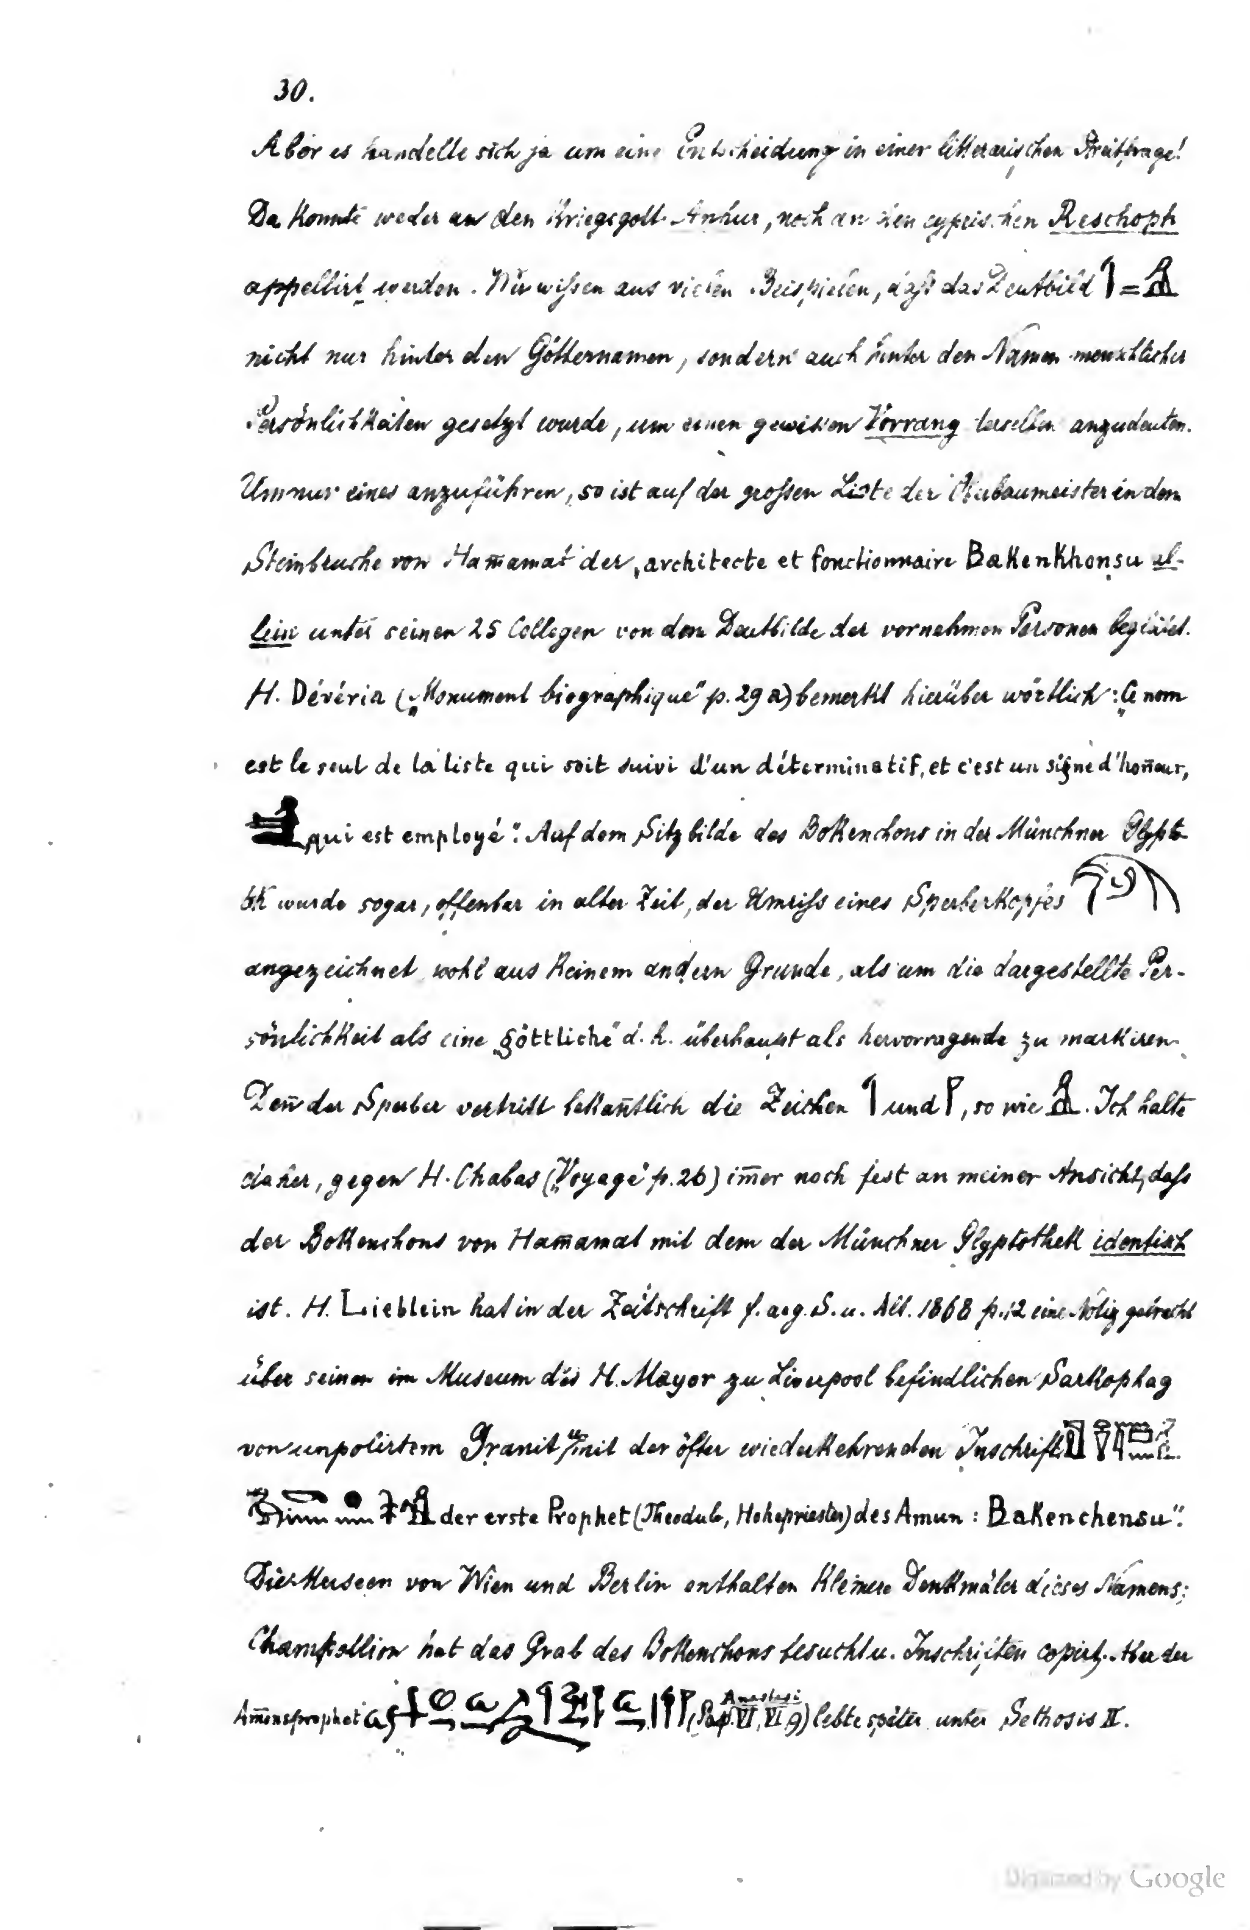 30.
Aber es handelte sich ja um eine Entscheidung in einer litterarischen Streitfrage!
Da konnte weder an den Kriegsgott Anhur, noch an den cyprischen Reschoph
appellirt werden. Wir wißen aus vielen Beispielen, daß das Deutbild =
nicht nur hinter den Götternamen, sondern auch hinter den Namen menschlicher
Persönlichkeiten gesetzt wurde, um einen gewissen Vorrang derselben anzudeuten.
Um nur eines anzuführen, so ist auf der großen Liste der Oberbaumeister in dem
Steinbruche von Ham̄amat der „architecte et fonctionnaire BakenKhonsu al-
lein unter seinen 25 Collegen von dem Deutbilde der vornehmen Personen begleitet.
H. Dévéria („Monument biographique" p. 29 a) bemerkt hierüber wörtlich: „Ce nom
est le seul de la liste qui soit suivi d'un déterminatif, et c'est un signe d'hon̄eur,
qui est employé". Auf dem Sitzbilde des Bokenchons in der Münchner Glypto-
tek wurde sogar, offenbar in alter Zeit, der Umriß eines Sperberkopfes
angezeichnet wohl aus keinem andern Grunde, als um die dargestellte Per-
sönlichkeit als eine „göttliche" d. h. überhaupt als hervorragende zu markiren.
Den̄ der Sperber vertritt bekan̄tlich die Zeichen und , so wie . Ich halte
daher, gegen H. Chabas („Voyage" p. 26) im̄er noch fest an meiner Ansicht, daß
der Bokenchons von Ham̄amat mit dem der Münchner Glyptothek identisch
ist. H. Lieblein hat in der Zeitschrift f. aeg. S. u. Alt. 1868 p. 12 eine Notiz gebracht
über seinen im Museum des H. Mayor zu Liverpool befindlichen Sarkophag
von unpolirtem Granit mit der öfter wiederkehrenden Inschrift
der erste Prophet (Theodule, Hohepriester) des Amun : Bakenchensu".
Die Museen von Wien und Berlin enthalten kleinere Denkmäler dieses Namens;
Champollion hat das Grab des Bokenchons besucht u. Inschriften copirt. Aber der
Am̄onsprophet (Pap. Anastasi VI, VI 9) lebte später unter Sethosis II.
Digitized by Google